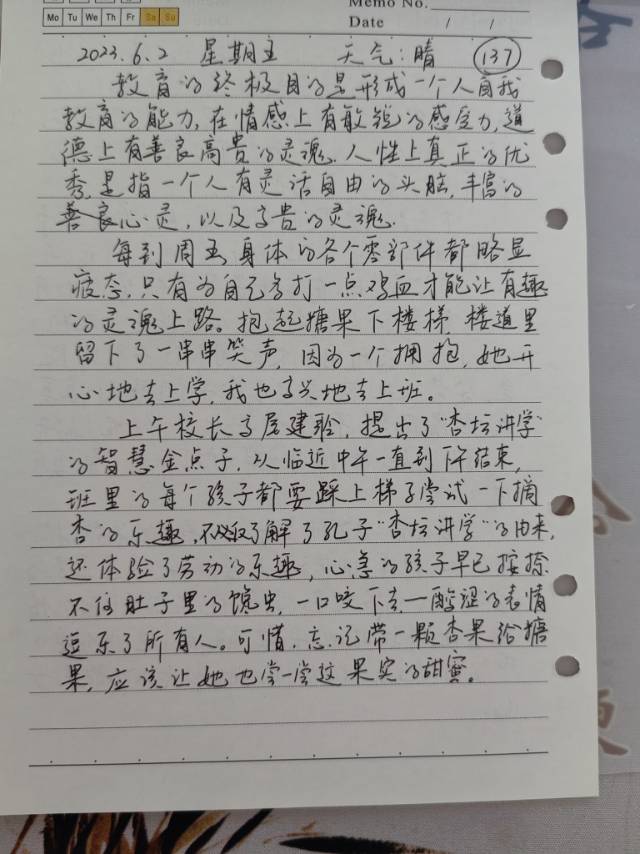 Memo No.
Mo Tu We Th Fr Sa Su
Date / /
2023.6.2 星期五 天气:晴 137
教育的终极目的是形成一个人自我
教育的能力,在情感上有敏锐的感受力,道
德上有善良高贵的灵魂.人性上真正的优
秀,是指一个人有灵活自由的头脑,丰富的
善良心灵,以及高贵的灵魂.
每到周五,身体的各个零部件都略显
疲态,只有为自己多打一点鸡血才能让有趣
的灵魂上路。抱起糖果下楼梯,楼道里
留下了一串串笑声,因为一个拥抱,她开
心地去上学,我也高兴地去上班。
上午校长高屋建瓴,提出了“杏坛讲学”
的智慧金点子,从临近中午一直到下午结束,
班里的每个孩子都要踩上梯子尝试一下摘
杏的乐趣,不仅了解了孔子“杏坛讲学”的由来,
还体验了劳动的乐趣,心急的孩子早已按捺
不住肚子里的馋虫,一口咬下去,一酸涩的表情
逗乐了所有人。可惜,忘记带一颗杏果给糖
果,应该让她也尝一尝这果实的甜蜜。